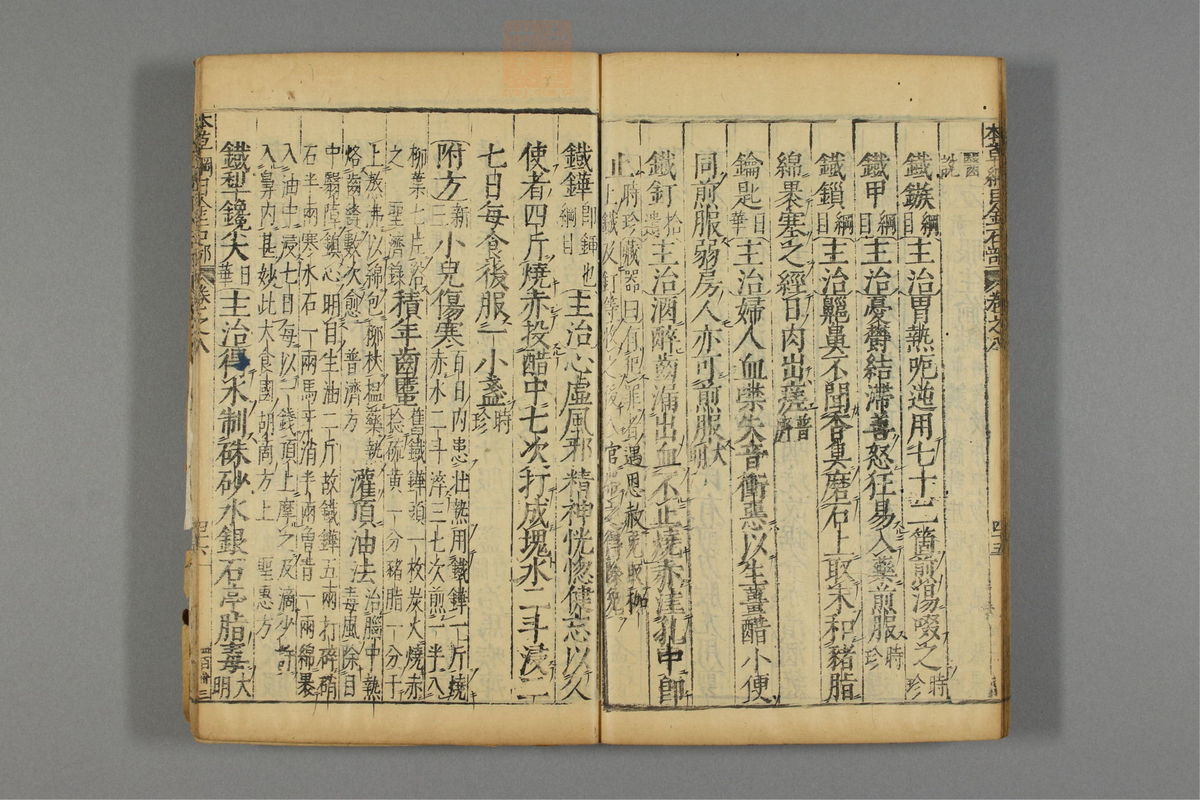 本草綱目金石部 卷之八 四十五
鐵鏃綱目主治胃熱呃逆用七十二箇煎湯啜之時珍
鐵甲綱目主治憂鬱結滯善怒狂易入藥煎服時珍
鐵鎖綱目主治齆鼻不聞香臭磨石上取末和豬脂
綿裹塞之經日肉出瘥普濟
鑰匙日華主治婦人血噤失音衝惡以生薑醋小便
同煎服弱房人亦可煎服大明
鐵釘拾遺主治酒醉齒漏出血不止燒赤注孔中即
止時珍藏器曰有犯罪者遇恩赦免取枷
上鐵及釘等收之後入官帶之得除免
鐵鏵綱目即鍤也主治心虛風邪精神恍惚健忘以久
使者四斤燒赤投醋中七次打成塊水二斗浸二
七日每食後服一小盞時珍
附方新三小兒傷寒百日內患壯熱用鐵鏵一斤燒赤水二斗淬三七次煎一半入
柳葉七片浴之聖濟錄積年齒䘌舊鐵鏵頭一枚炭火燒赤捻硫黃一分豬脂一分于
上熬沸以綿包柳杖搵藥熱烙齒縫數次愈普濟方灌頂油法治腦中熱毒風除目
中翳障鎮心明目生油二斤故鐵鏵五兩打碎消
石半兩寒水石一兩馬牙消半兩曾青一兩綿裹
入油中浸七日每以一錢頂上摩之及滴少許
入鼻內甚妙此大食國胡商方上聖惠方
鐵犁鑱尖日華主治得水制硃砂水銀石亭脂毒大明
本草綱目金石部 卷之八 四十六